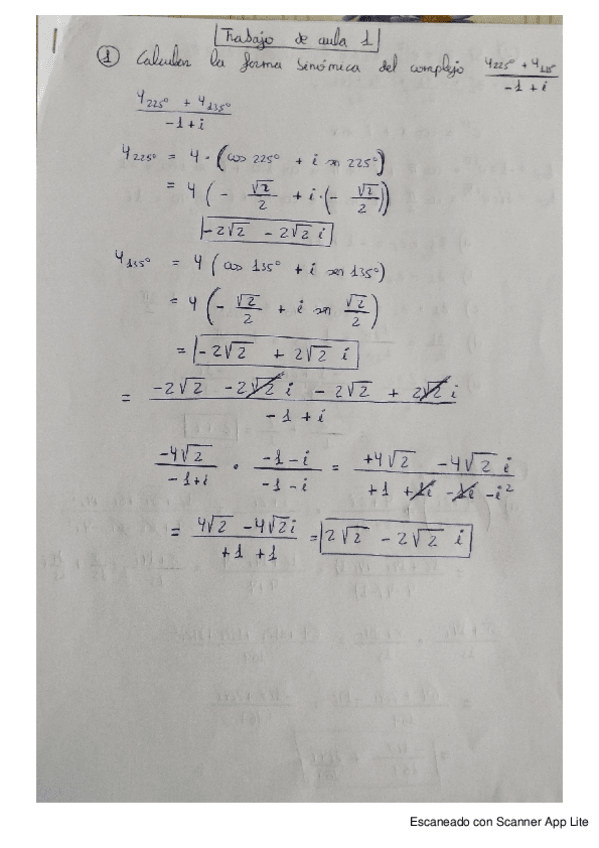 Trabajo de aula 1
① Calculen la forma binómica del complejo (4₂₂₅° + 4₁₃₅°)/(-1 + i)
(4₂₂₅° + 4₁₃₅°)/(-1 + i)
4₂₂₅° = 4 · (cos 225° + i sn 225°)
= 4 (- √2/2 + i·(- √2/2))
-2√2 - 2√2 i
4₁₃₅° = 4 (cos 135° + i sen 135°)
= 4 (- √2/2 + i sn √2/2)
= -2√2 + 2√2 i
= (-2√2 - 2√2 i - 2√2 + 2√2 i)/(-1 + i)
(-4√2)/(-1+i) · (-1-i)/(-1-i) = (+4√2 - 4√2 i)/(+1 +1i -1i -i²)
= (4√2 - 4√2i)/(+1 +1) = 2√2 - 2√2 i
Escaneado con Scanner App Lite